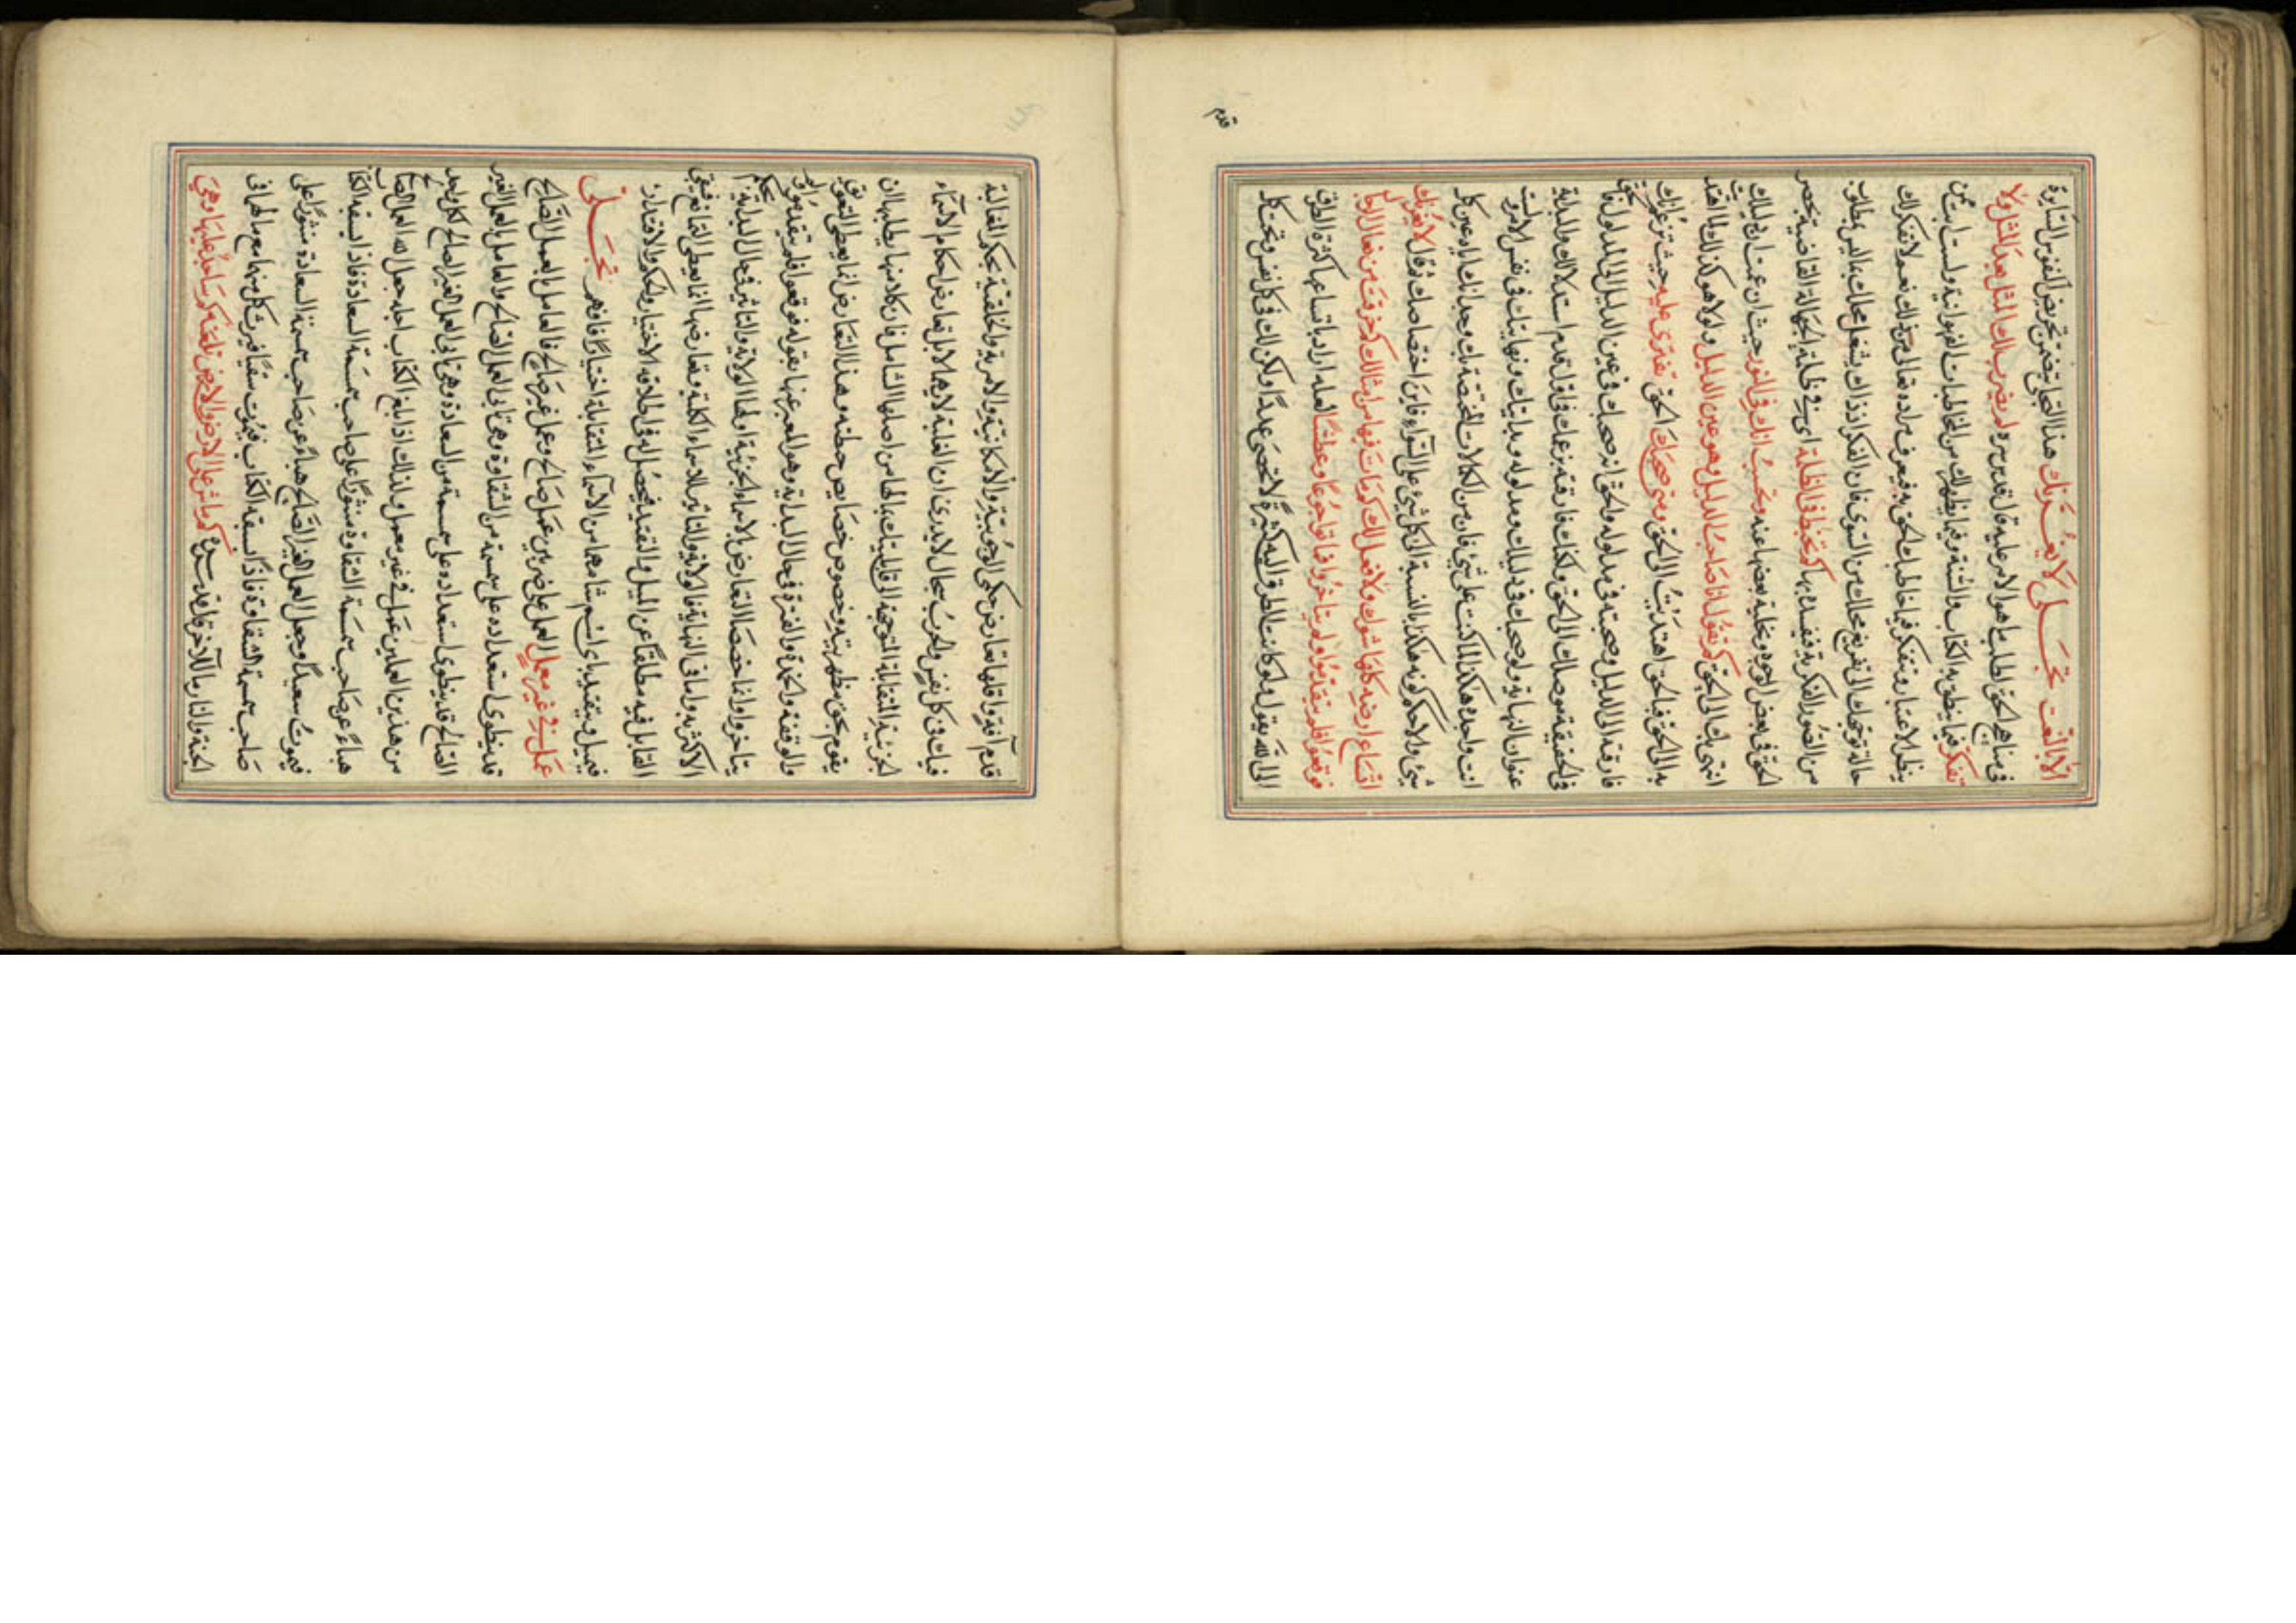 الا بالنعت تجلى لا يغرنك هذا التجلى يتضمن تحريض النفوس السايرة
فى مناهج الحق لطلب ما هو الامر عليه قال قدس سره لم يضرب لك المثل بعد المثل ولا
تتفكر فيما ينطق به الكتاب والسنة وفيما يظهر لك من المخاطبات الفهوانية ولست ممن
ينظر الاعتبار ويتفكر فيما خاطبك الحق به فيعرف مراده تعالى من ذلك نعم ولا تفكر لك
حالة توجهك الى تفريغ محلك من السوى فان الفكر اذ ذاك يشغل محلك بما ليس بمطلوب
من الصور الفكرية فيفسد بها كم تخبط فى الظلمة اى فى ظلمة الجهالة القاضية بحصر
الحق فى بعض الوجوه وتخلية بعضها عنه وتحسب انك فى النور حيث ان عمت ان دليلك
انتهى بك الى الحق كم تقول انا صاحب الدليل وهو عين الدليل ولولا هو كذلك لما اهتديت
به الى الحق فبالحق اهتديت الى الحق ومتى صحبك الحق تفترى عليه حيث تزعم انك
فارقته الى الدليل وصحبته فى مدلوله والحق انه صحبك فى عين الدليل الى المدلول فما
فى الحقيقة موصلك الى الحق ولكنك فارقته بزعمك فى اول قدم استدلالك والبداية
عنوان النهاية ولو صحبك فى دليلك ومدلوله وبدايتك ونهايتك فى نفس الامر لست
انت واجده هكذا الا كنت على شئ فان من الكمالات المختصة بك وجدانك اياه عين كل
شئ ولا حكم كونه هكذا بالنسبة الى كل شئ على السواء فاين اختصاصك ثم قال لا يغرنك
اتساع ارضه كلها شوك ولا نعل لك كم مات فيها من امثالك كم خرقت من نعال الرجال
فوقفوا فلم يتقدموا ولم يتاخروا فماتوا جوعا وعطشا لعله اراد باتساعها كثرة الطرق
الى الله بقوله ولو كانت الطرق اليه كثيرة لا تحصى عددا ولكن لك فى كل نفس وتحت كل
قدم
قدم آفة واقلها تعارض حكمى الوجوبية والامكانية والامرية والخلقية بحكم المغالبة
فيك فى كل نفس والحرب سجال لا يدرى ان الغلبة لايهما لا بل تعارض احكام الاسماء
الجزئية المتقابلة المتوجهة الى قابليتك بما لها من اصلها الشامل فان كلا منها يطلبها ان
يقوم بحق مظهريته وخصوص خصايص حيطته وهذا التعارض انما يعطى التعويق
والوقفة والحيرة والفترة فى حال البداية وهو المعبر عنها بقوله فوقفوا فلم يتقدموا ولم
يتاخروا وانما خصصنا التعارض بالاسماء الجزئية اولها الولاية والتاثير فى حال البداية بحكم
الاكثرية واما فى النهاية فالولاية والتاثير للاسماء الكلية وتعارضها انما يعطى التمانع فيبقى
القابل فيه مطلقا عن الميل والتقيد فيحصل له فى اطلاقه الاختيار والحكم والاقتدار
فيميل ويتقيد باى اسم شاء مهما من الاسماء المتقابلة اختيارا فافهم تجلى
عمل فى غير معمل العمل على ضربين عمل صالح وعمل غير صالح فالعامل بالعمل الصالح
قد ينطوى استعداده على سمة من الشقاوة وهو تابى العمل الصالح والعامل بالعمل الغير
الصالح قد ينطوى استعداده على سمة من السعادة وهو تابى العمل الغير الصالح فكل واحد
من هذين العاملين عمل فى غير معمل ولذلك اذا بلغ الكتاب اجله جعل الله العمل الصالح
هباء عن صاحب سمة الشقاوة منثورا على صاحب سمة السعادة فاذا سبقه الكتاب
فيموت سعيدا وجعل العمل الغير الصالح هباء عن صاحب سمة السعادة منثورا على
صاحب سمة الشقاوة فاذا سبقه الكتاب فيموت شقيا فيرث كل منهما مع ما لهما فى
الجنة والنار ما للآخر قال قدس سره كم ماش على الارض والارض تلعنه كم ساجد عليها وهى